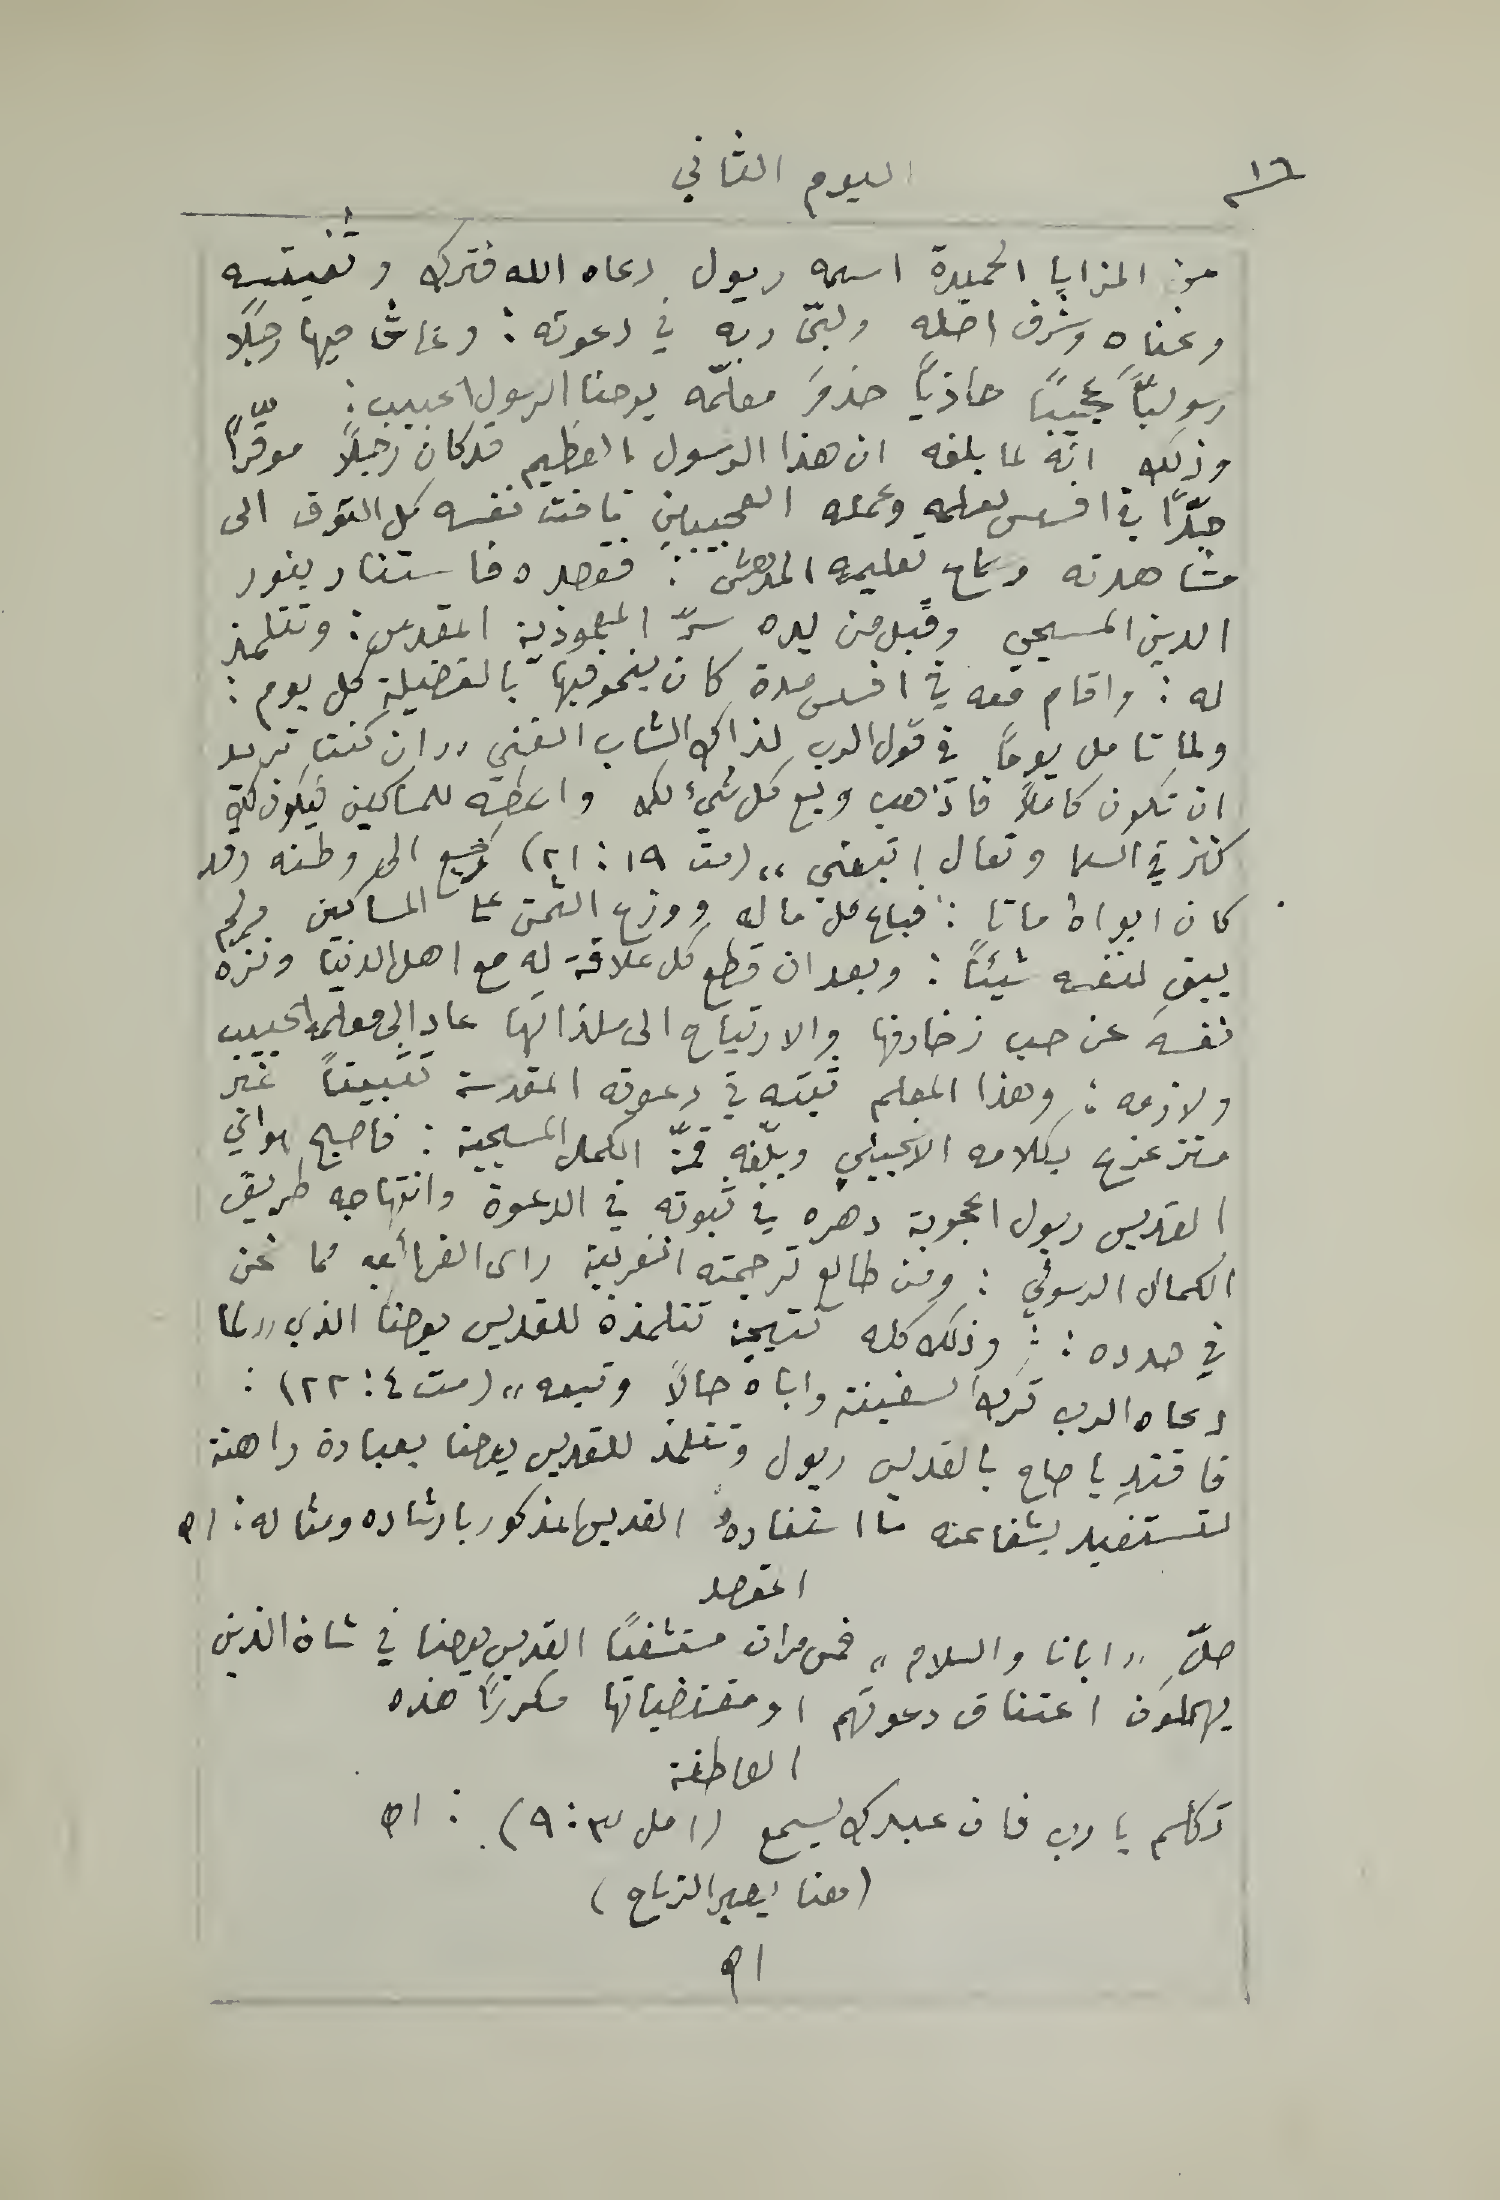 ١٦
اليوم الثاني
من المزايا الحميدة اسمه ريول دعاه الله فترك
وغناه وشرف اصله ولبّى ربه في دعوته : وعاش فيها رجلًا
رسوليًّا عجيبًا حاذيًا حذوَ معلّمه يوحنا الرسول الحبيب :
وذلك انه لما بلغه ان هذا الرسول العظيم قد كان رجلًا موقّرًا
جدًّا في افسس لعلمه وعمله العجيبين تاقت نفسه كل التوق الى
مشاهدته وسماع تعليمه المدهش : فقصده فاستنار بنور
الدين المسيحي وقبل من يده سرّ المعموذية المقدس : وتتلمذ
له : واقام معه في افسس مدة كان ينمو فيها بالفضيلة كل يوم :
ولما تامل يومًا في قول الرب لذاك الشاب الغني ,, ان كنت تريد
ان تكون كاملًا فاذهب وبع كل شيء لك واعطه للمساكين فيكون لك
كنز في السما وتعال اتبعني ,, (مت ١٩ : ٢١) رجع الى وطنه وقد
كان ابواه ماتا : فباع كل ماله ووزع الثمن على المساكين ولم
يبقِ لنفسه شيئًا : وبعد ان قطع كل علاقة له مع اهل الدنيا ونزه
نفسه عن حب زخارفها والارتياح الى ملذاتها عاد الى معلمه الحبيب
ولازمه : وهذا المعلم ثبته في دعوته المقدسة تثبيتًا غير
متزعزع بكلامه الانجيلي وبلّغه قمّة الكمال المسيحية : فاصبح
القديس ريول اعجوبة دهره في ثبوته في الدعوة وانتهاجه طريق
الكمال الرسولي : ومن طالع ترجمته الغريبة راى الغرائب مما نحن
في صدده : وذلك كله نتيجة تتلمذه للقديس يوحنا الذي ,, لما
دعاه الرب ترك السفينة واباه حالًا وتبعه ,, (مت ٤ : ٢٢) :
فاقتدِ يا صاح بالقديس ريول وتتلمذ للقديس يوحنا بعبادة راهنة
لتستفيد بشفاعته ما استفاده القديس المذكور بارشاده ومثاله : اه
المقصد
صلِّ ,, ابانا والسلام ,, خمس مرات مستشفعًا القديس يوحنا في شان الذين
يهملون اعتناق دعوتهم او مقتضياتها مكررًا هذه
العاطفة
تكلم يا رب فان عبدك يسمع (امل ٣ : ٩) : اه
اه